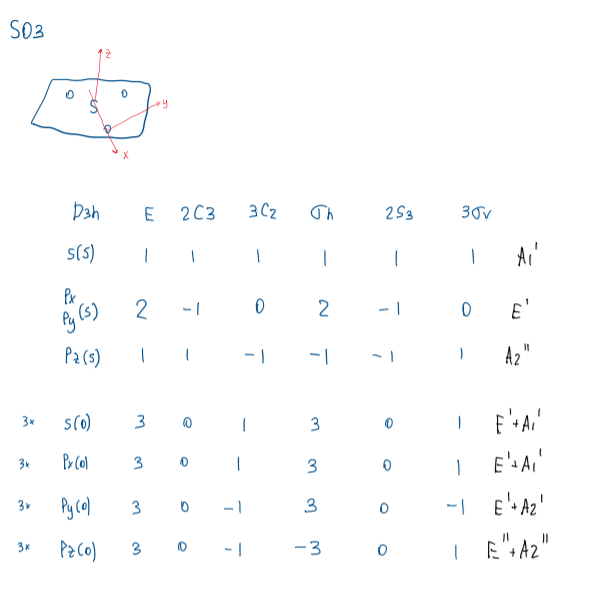 SO3
z
O O
S
y
O
x
D3h E 2C3 3C2 σh 2S3 3σv
s(s) 1 1 1 1 1 1 A1'
Px
Py (s) 2 -1 0 2 -1 0 E'
Pz(s) 1 1 -1 -1 -1 1 A2"
3x s(o) 3 0 1 3 0 1 E'+A1'
3x Px(o) 3 0 1 3 0 1 E'+A1'
3x Py(o) 3 0 -1 3 0 -1 E'+A2'
3x Pz(o) 3 0 -1 -3 0 1 E"+A2"